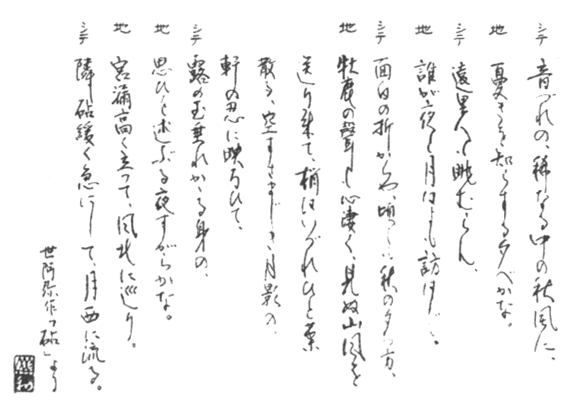 シテ 音づれの、稀なる中の秋風に、
地 憂きを知らする夕べかな。
シテ 遠里人も眺むらん、
地 誰が夜と月はよも訪はじ。
シテ 面白の折からや、頃しも秋の夕つ方、
地 牡鹿の聲も心凄く、見ぬ山風を
送り来て、梢はいづれひと葉
散る、空すさまじき月影の、
軒の忍に映ろひて、
シテ 露の玉垂れかゝる身の、
地 思ひを述ぶる夜すがらかな。
地 宮漏高く立つて、風北に巡り。
シテ 隣砧緩く急にして、月西に流る。
世阿弥作「砧」より